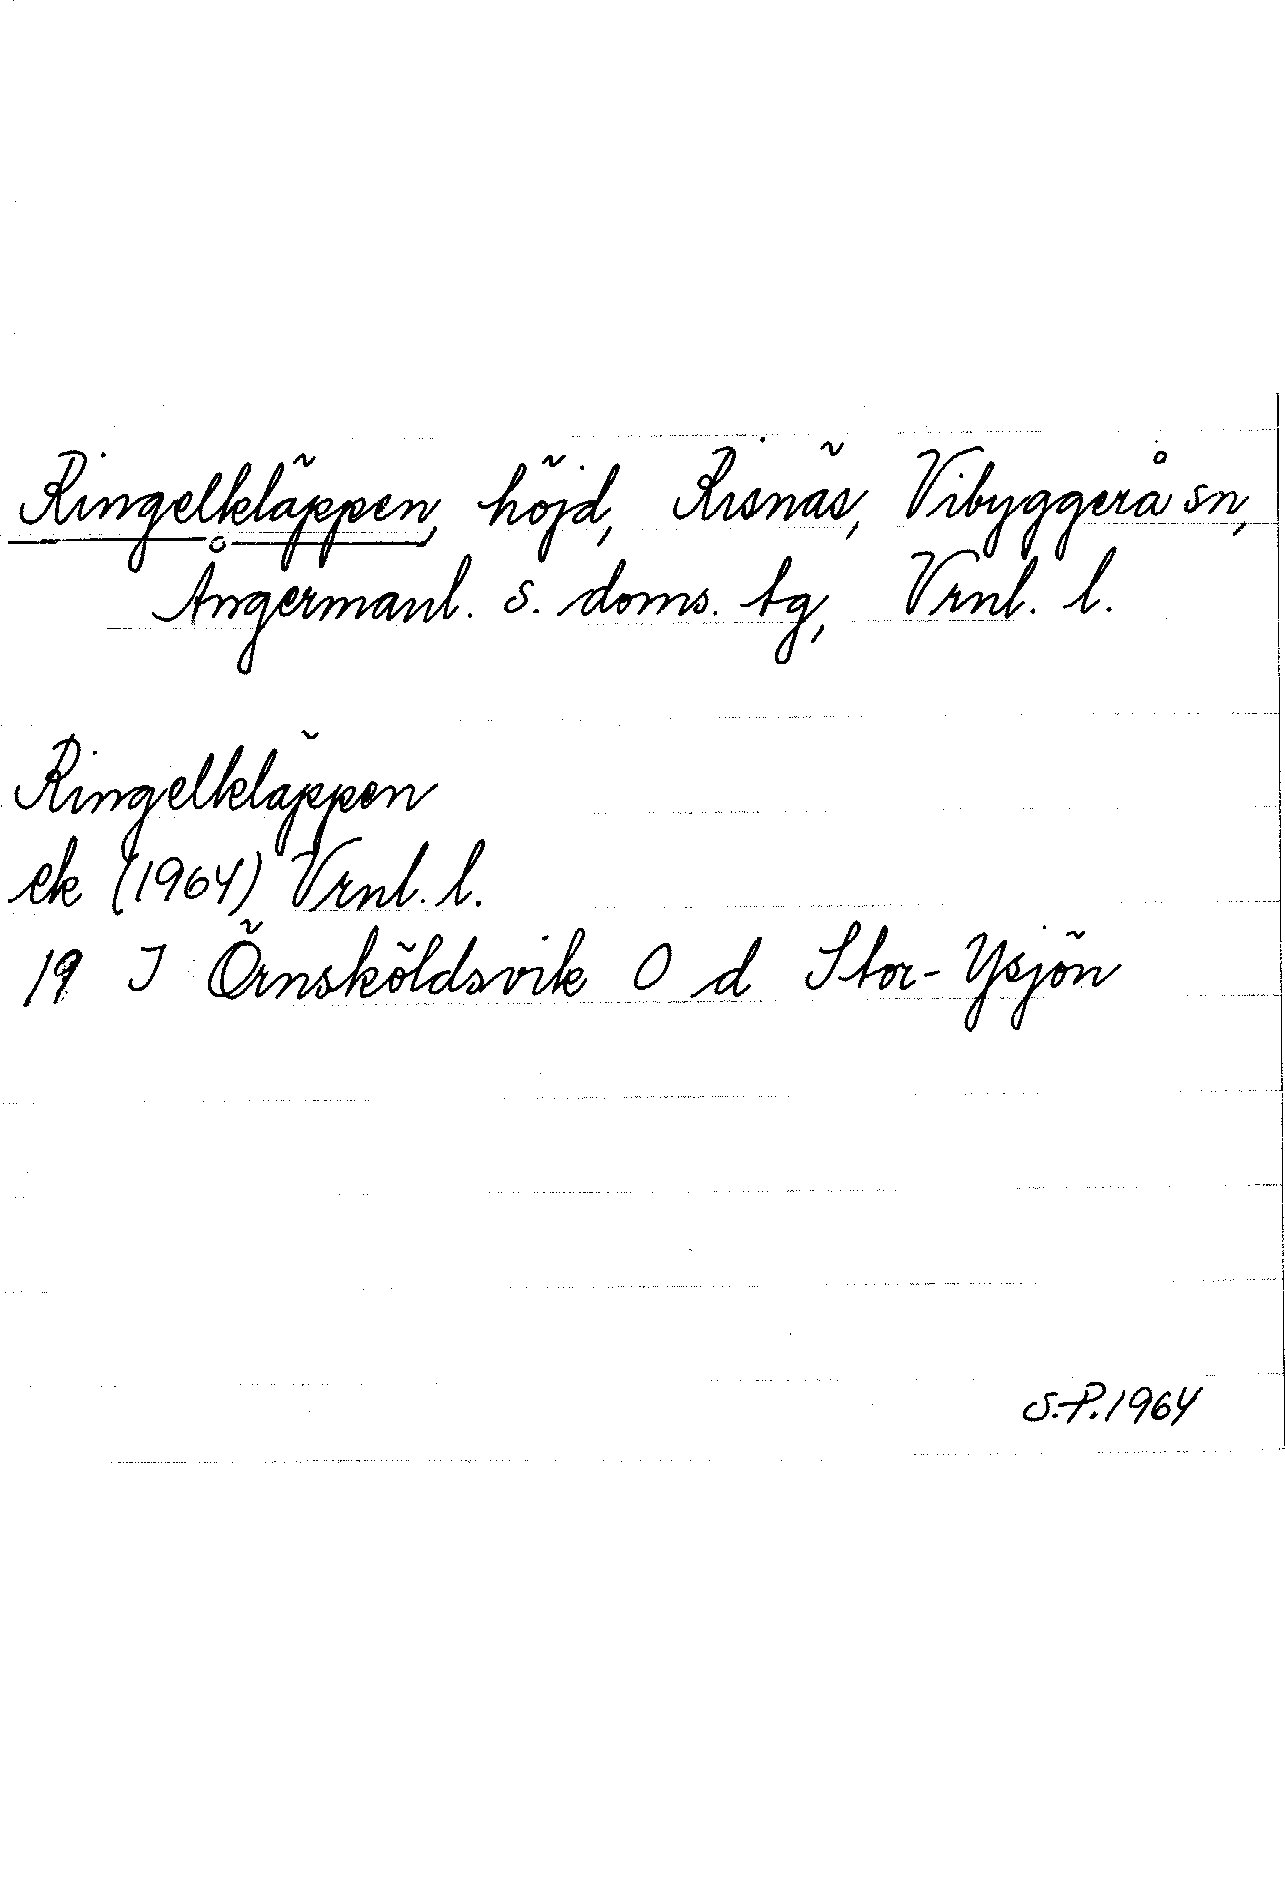 Ringelkläppen, höjd, Risnäs, Vibyggerå sn,
Ångermanl. s. doms. tg, Vrnl. l.
Ringelkläppen
ek (1964) Vrnl. l.
19 I Örnsköldsvik O d Stor-Ysjön
S.P. 1964